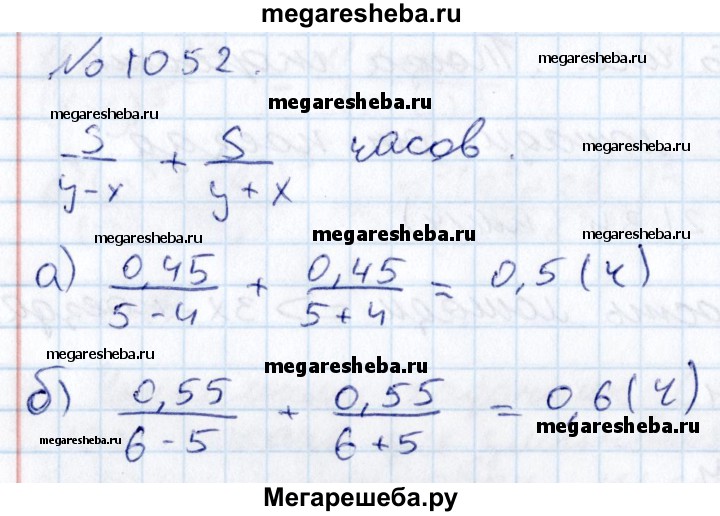 megaresheba.ru
№ 1052. megaresheba.ru
megaresheba.ru megaresheba.ru
S/(y-x) + S/(y+x) часов.
megaresheba.ru megaresheba.ru megaresheba.ru
а) 0,45/(5-4) + 0,45/(5+4) = 0,5 (ч)
megaresheba.ru megaresheba.ru megaresheba.ru
б) 0,55/(6-5) + 0,55/(6+5) = 0,6 (ч)
megaresheba.ru megaresheba.ru
Мегарешеба.ру